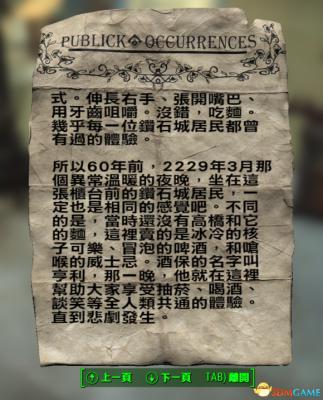 PUBLICK OCCURRENCES
式。伸長右手、張開嘴巴、
用牙齒咀嚼。沒錯，吃麵。
幾乎每一位鑽石城居民都曾
有過的體驗。
所以60年前，2229年3月那
個異常溫暖的夜晚，坐在這
張櫃台前的鑽石城居民，一
定也是相同的感覺吧。不同
的是，當時還沒有高橋和它
的麵，這裡賣的是冰冷的核
子可樂、冒泡的啤酒，和嗆
喉的威士忌。酒保的名字叫
亨利，那一晚，他就在這裡
幫助大家享受抽菸、喝酒、
談笑等全人類共通的體驗。
直到悲劇發生。
上一頁 下一頁 TAB) 離開
3DMGAME